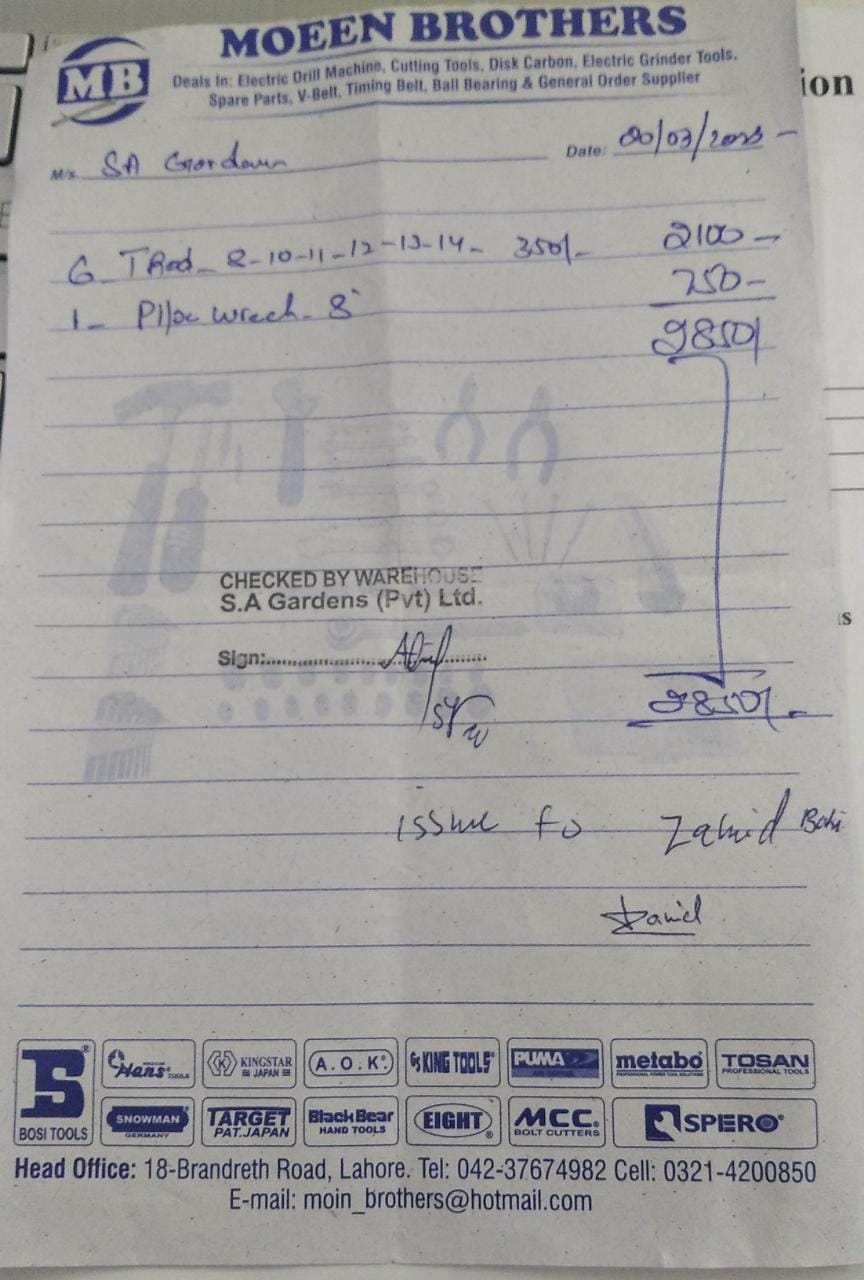 MOEEN BROTHERS
MB
Deals In: Electric Drill Machine, Cutting Tools, Disk Carbon, Electric Grinder Tools,
Spare Parts, V-Belt, Timing Belt, Ball Bearing & General Order Supplier
ion
M/s. SA Garden Date: /03/
6 T Rod - 8-10-11-12-13-14- 350/- 2100-
1- wrech - 8" 750-
2850/
CHECKED BY WAREHOUSE
S.A Gardens (Pvt) Ltd.
is
Sign:
2850/-
issue to Zahid
BOSI TOOLS
Hans TOOLS
KINGSTAR JAPAN
A.O.K.
KING TOOLS
PUMA
metabo PROFESSIONAL POWER TOOL SOLUTIONS
TOSAN PROFESSIONAL TOOLS
SNOWMAN GERMANY
TARGET PAT.JAPAN
BlackBear HAND TOOLS
EIGHT
MCC. BOLT CUTTERS
SPERO
Head Office: 18-Brandreth Road, Lahore. Tel: 042-37674982 Cell: 0321-4200850
E-mail: moin_brothers@hotmail.com